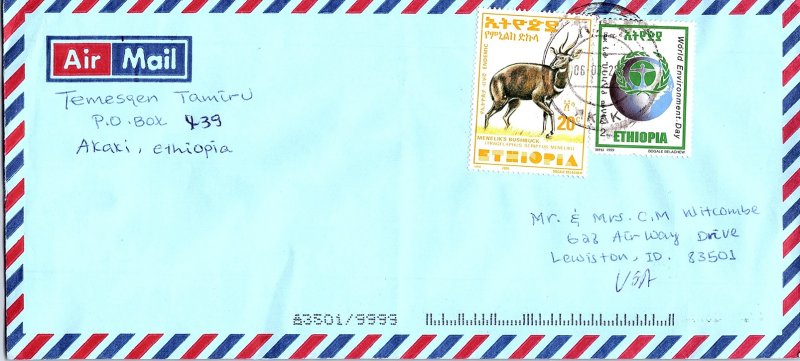 Air Mail
Temesgen Tamiru
P.O.Box 439
Akaki, Ethiopia
ኢትዮጵያ
የምኒልክ ድኩላ
ENDEMIC
20
MENELIK'S BUSHBUCK
ETHIOPIA
ኢትዮጵያ
World Environment Day
ETHIOPIA
1999
BEGALE BELACHEW
Mr. & Mrs. C.M Witcombe
628 Airway Drive
Lewiston, ID. 83501
USA
83501/9999